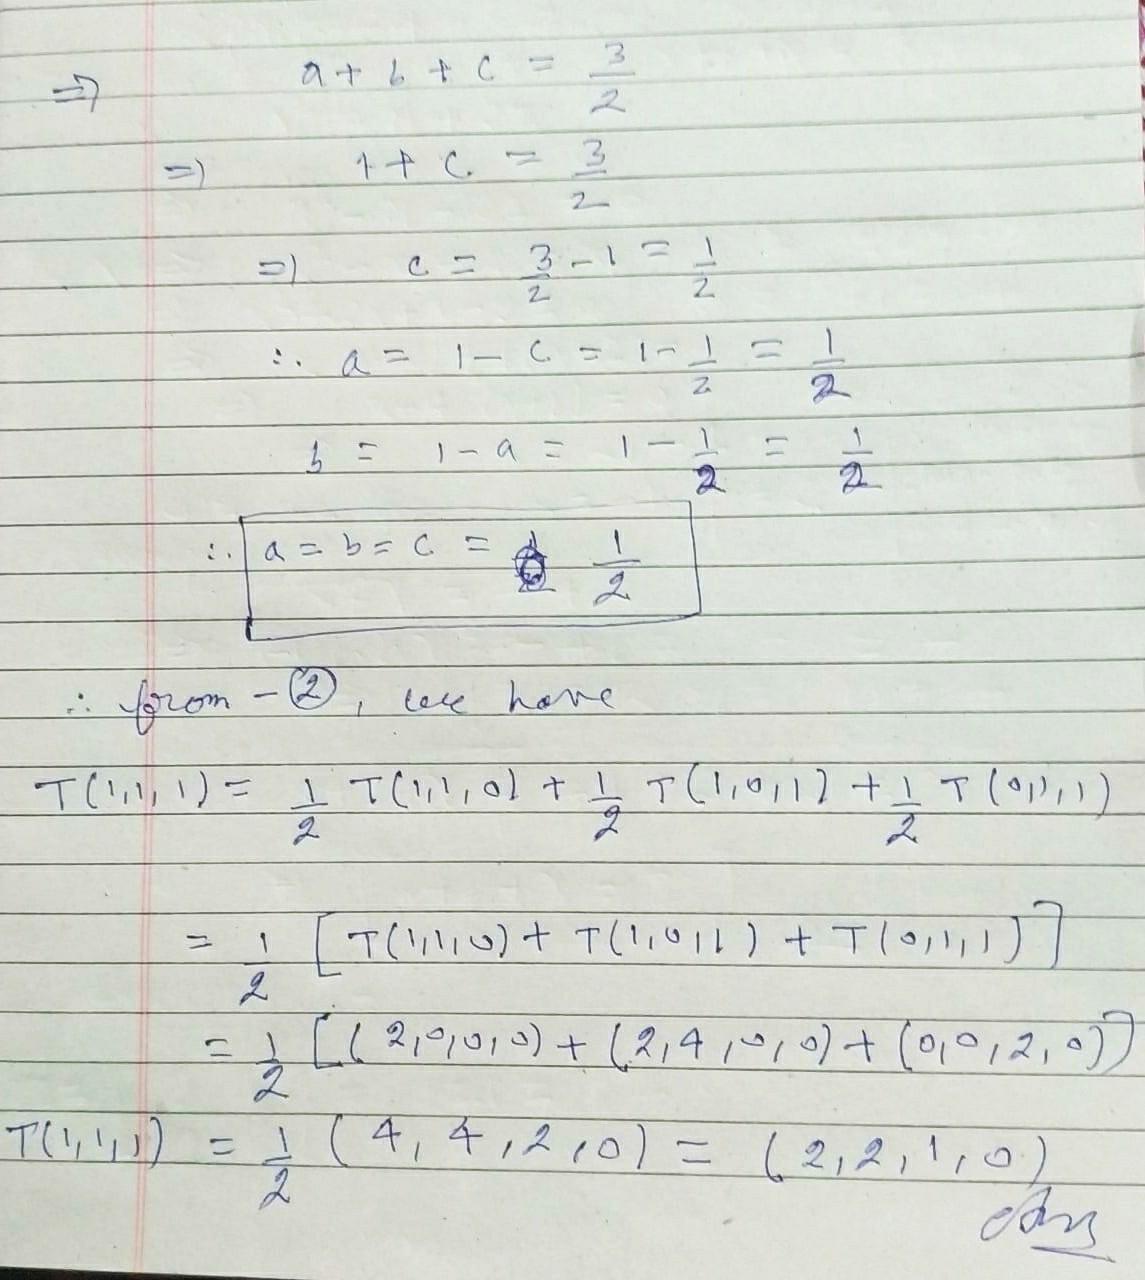 ⇒ a + b + c = 3/2
⇒ 1 + c = 3/2
⇒ c = 3/2 - 1 = 1/2
∴ a = 1 - c = 1 - 1/2 = 1/2
b = 1 - a = 1 - 1/2 = 1/2
∴ a = b = c = 1/2
∴ from - ②, we have
T(1,1,1) = 1/2 T(1,1,0) + 1/2 T(1,0,1) + 1/2 T(0,1,1)
= 1/2 [T(1,1,0) + T(1,0,1) + T(0,1,1)]
= 1/2 [(2,0,0,0) + (2,4,0,0) + (0,0,2,0)]
T(1,1,1) = 1/2 (4,4,2,0) = (2,2,1,0)
Ans